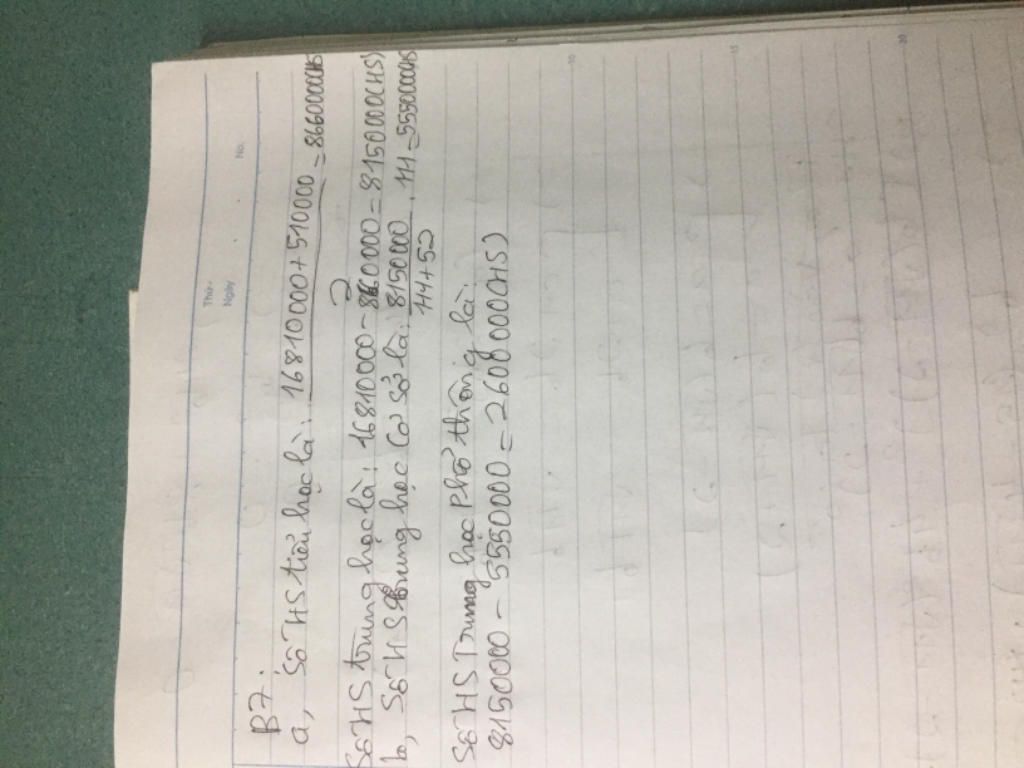 Thứ
Ngày
No.
B7.
a, Số HS tiểu học là: 16810000+510000 = 8660000(HS
2
Số HS trung học là: 16810000-8660000=8150000(HS)
b, Số HS trung học cơ sở là: 8150000 . 111 =5550000HS
111+52
Số HS Trung học Phổ thông là:
8150000 - 5550000 = 2600000(HS)
10
15
20